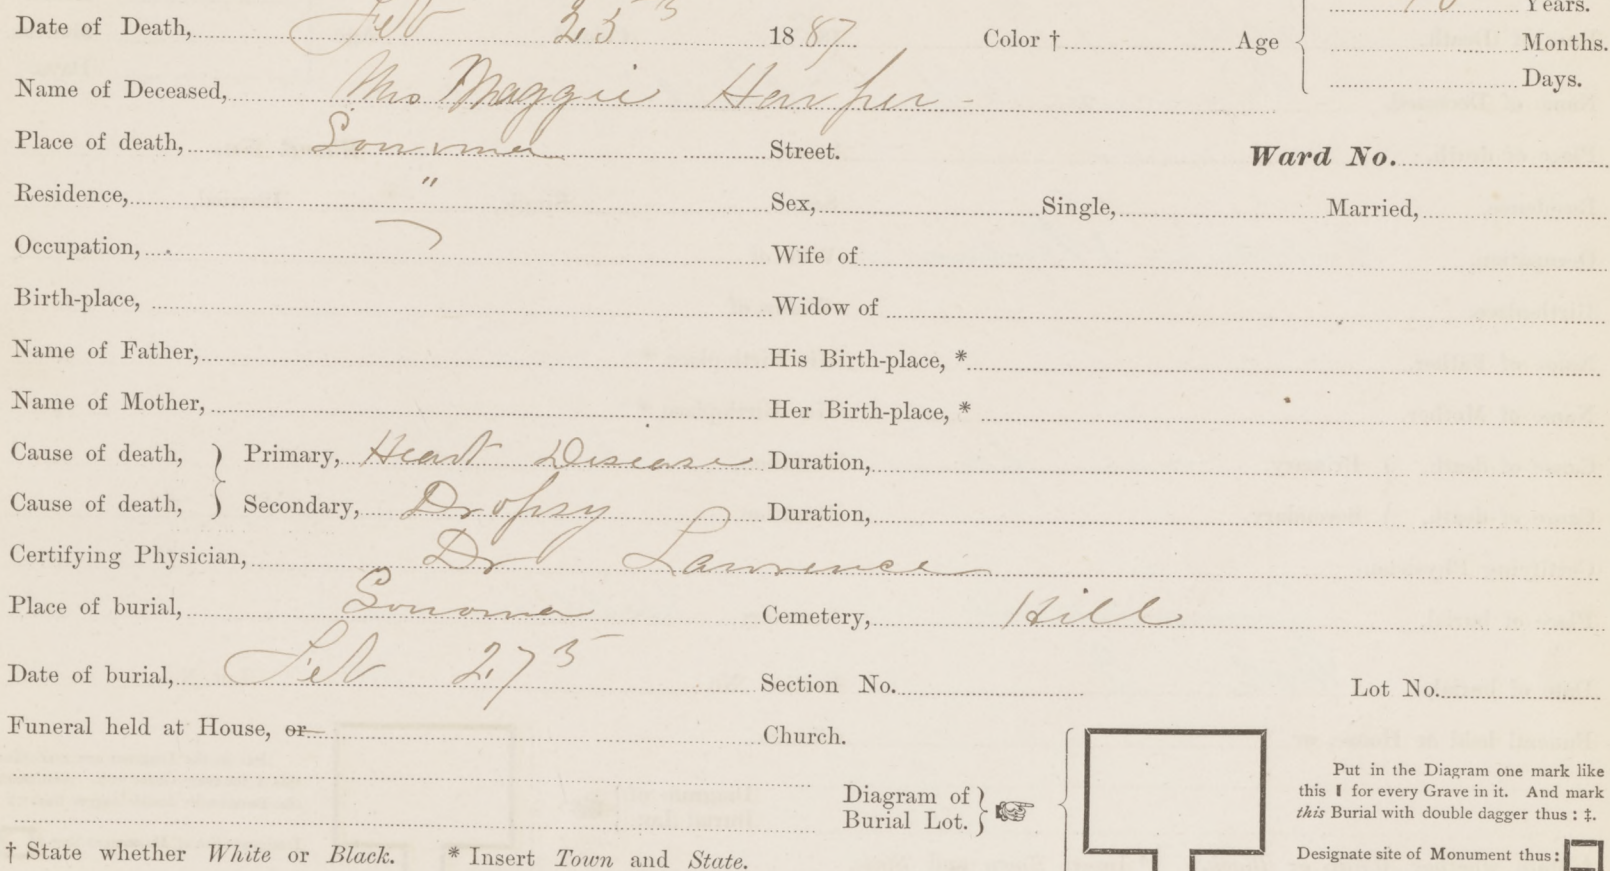 Years.
Date of Death, Feb 25 1887 Color † Age Months.
Days.
Name of Deceased, Mrs Maggie Harper -
Place of death, Sonoma Street. Ward No.
Residence, " Sex, Single, Married,
Occupation, Wife of
Birth-place, Widow of
Name of Father, His Birth-place, *
Name of Mother, Her Birth-place, *
Cause of death, } Primary, Heart Disease Duration,
Cause of death, } Secondary, Dropsy Duration,
Certifying Physician, Dr Lawrence
Place of burial, Sonoma Cemetery, Hill
Date of burial, Feb 27 Section No. Lot No.
Funeral held at House, or Church.
Diagram of
Burial Lot.
Put in the Diagram one mark like
this I for every Grave in it. And mark
this Burial with double dagger thus : ‡.
Designate site of Monument thus:
† State whether White or Black. * Insert Town and State.